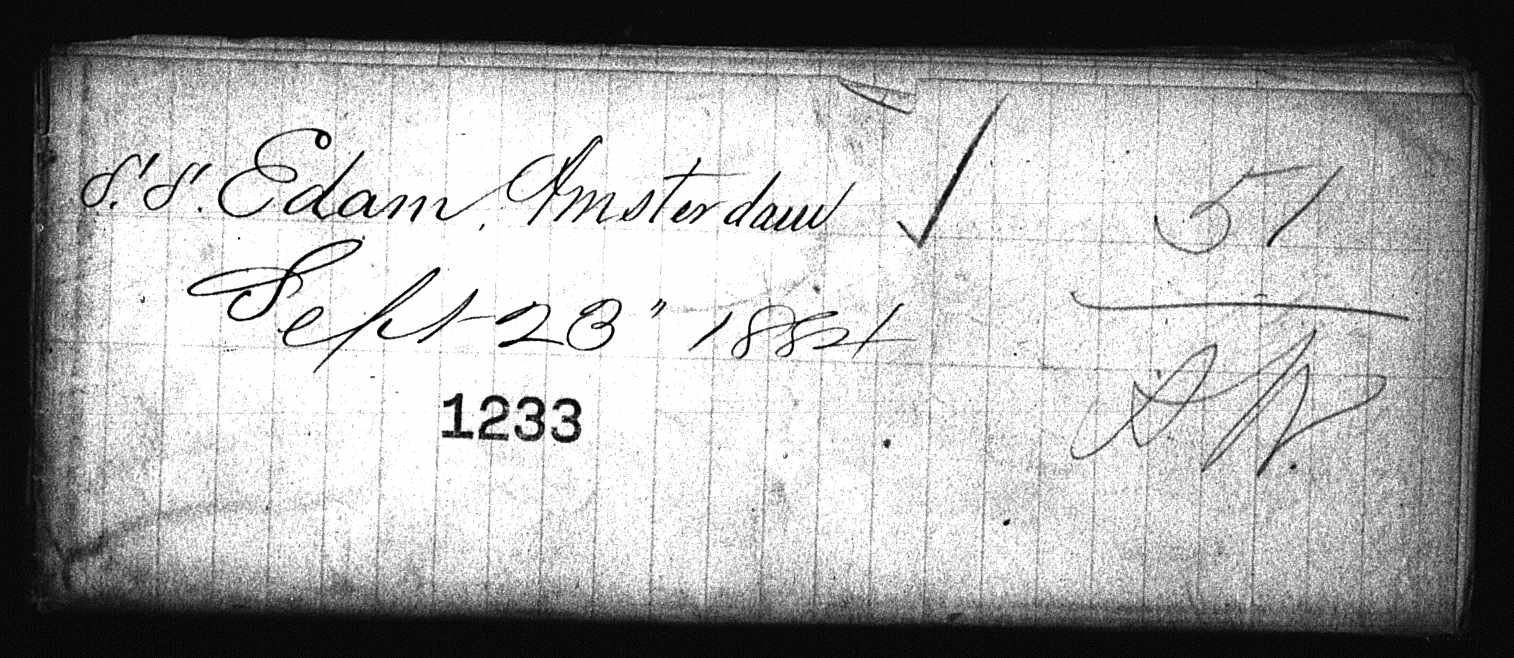 S.S. Edam, Amsterdam
Sept 23" 1884
1233
51